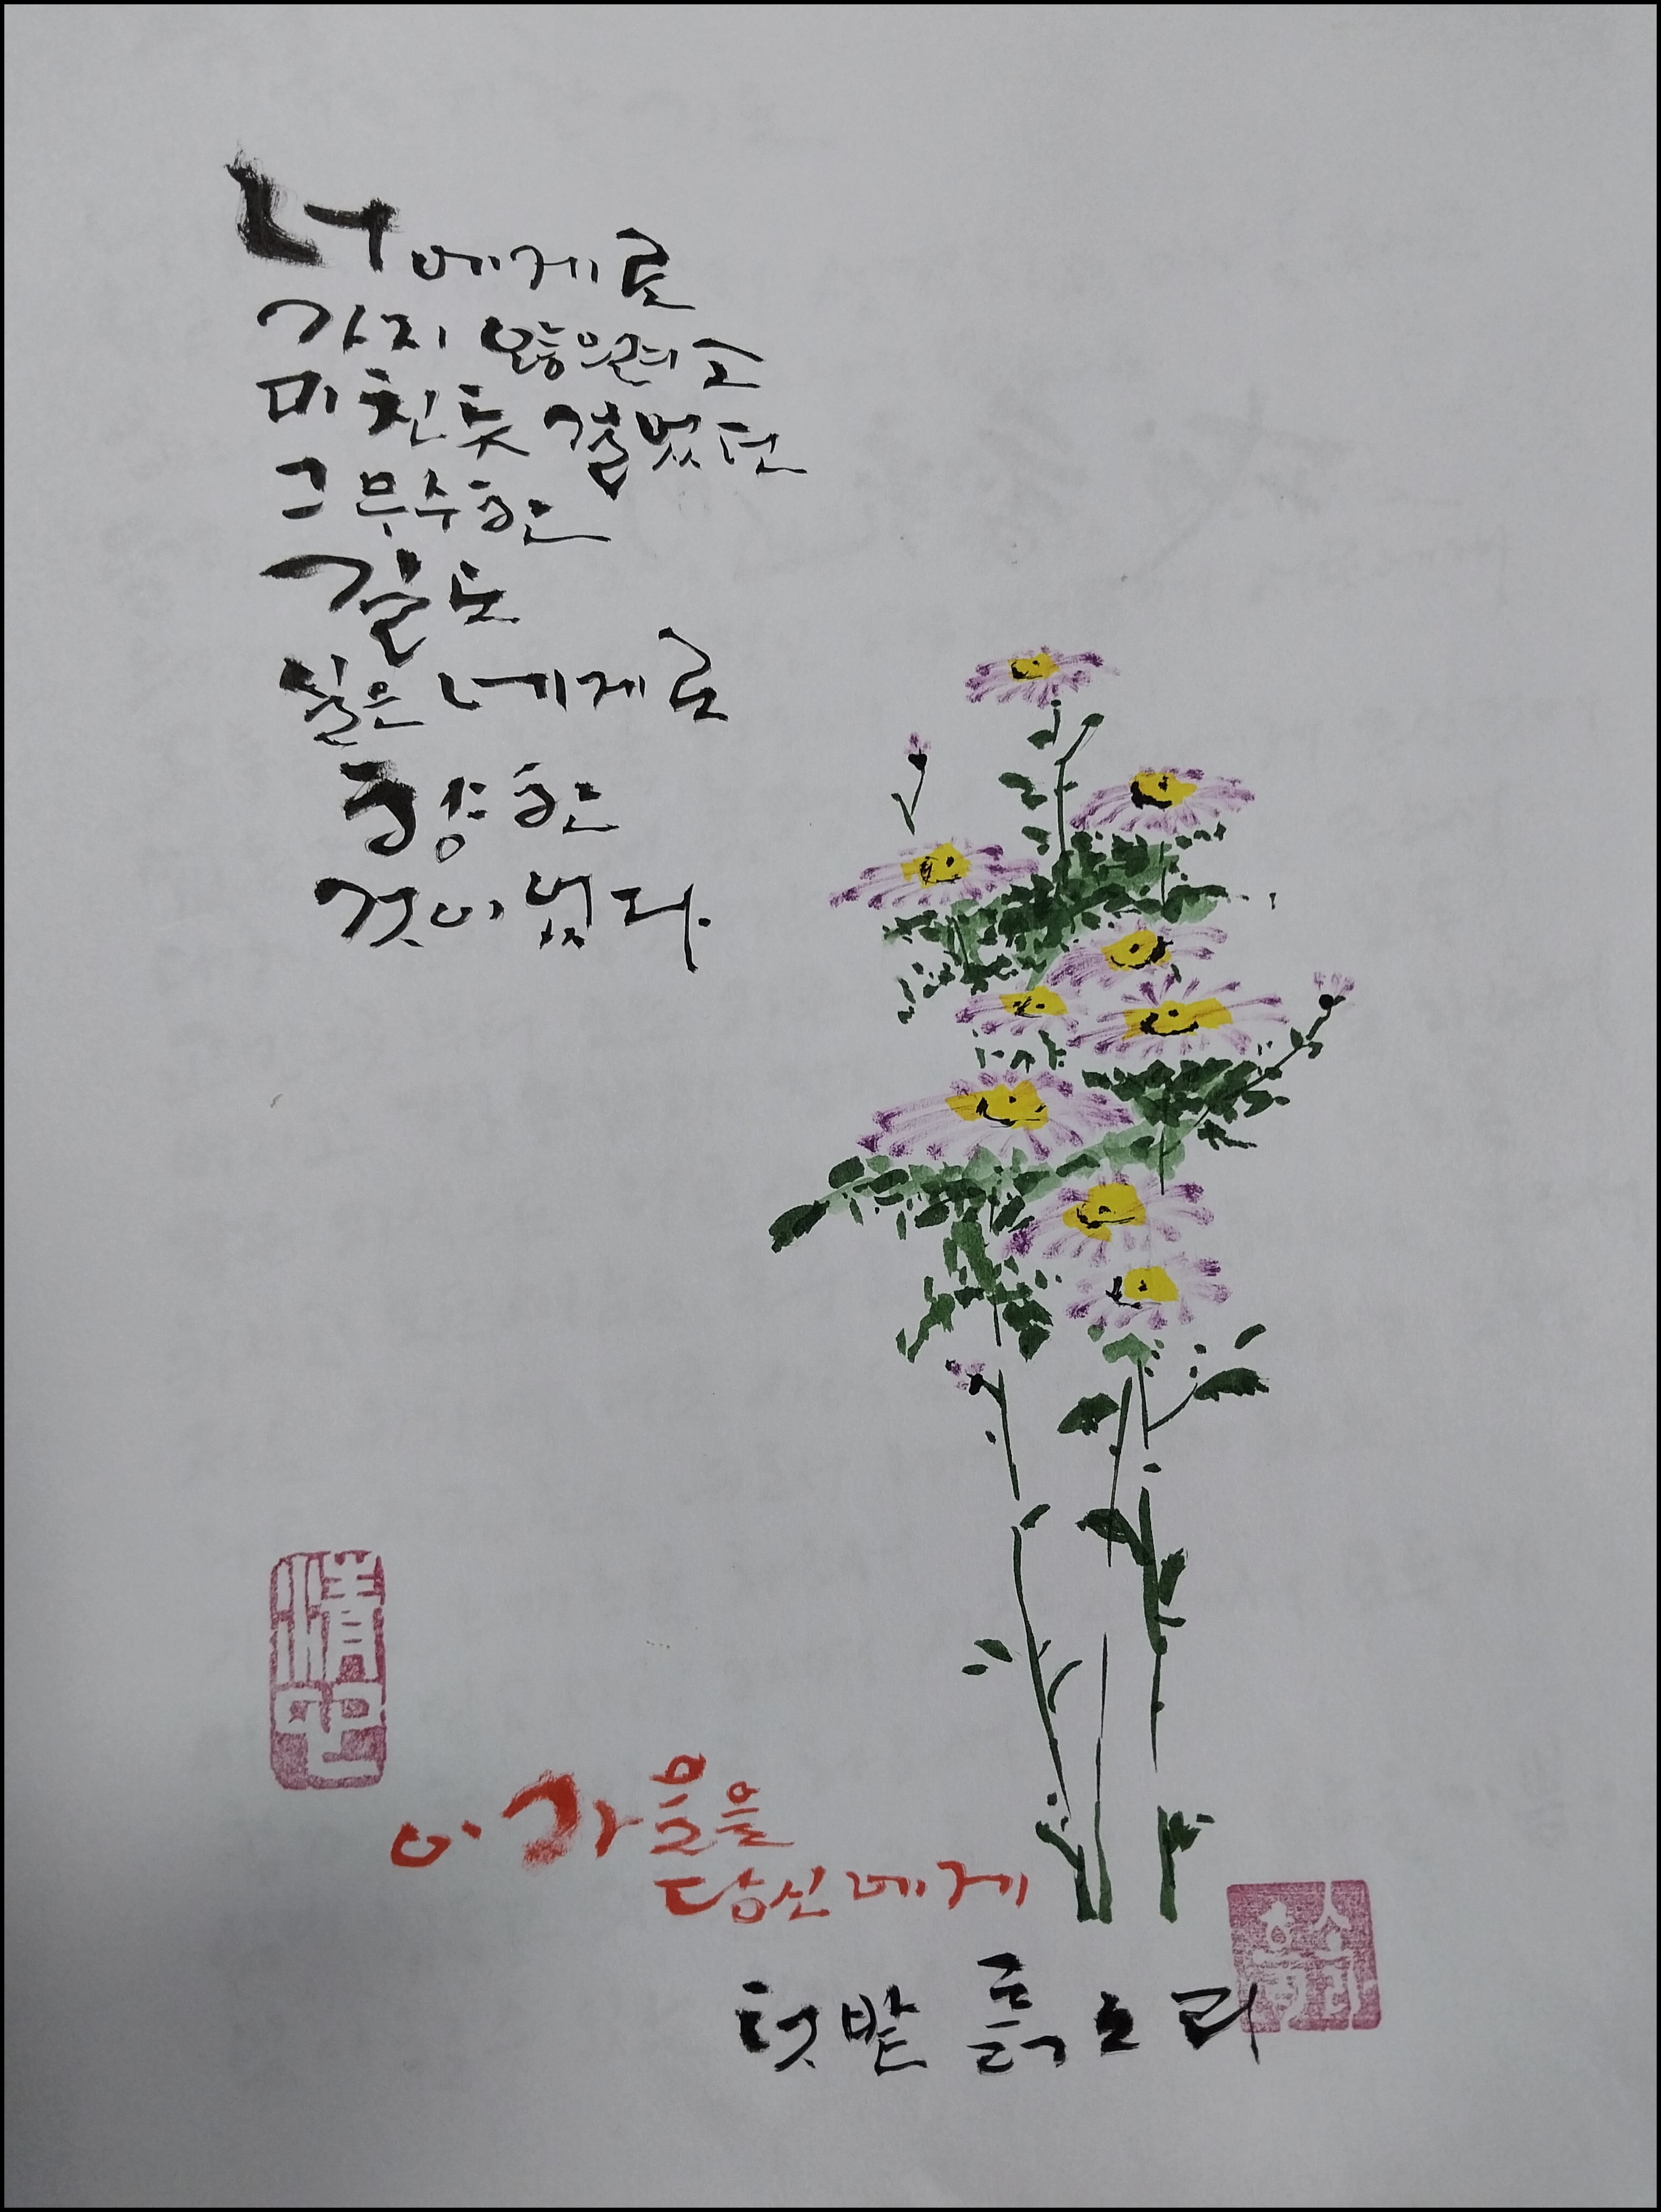 너에게로
가지 않으려고
미친듯 걸었던
그 무수한
길도
실은 네게로
향한
것이었다.
이 가을을
당신에게
텃밭 흙소리